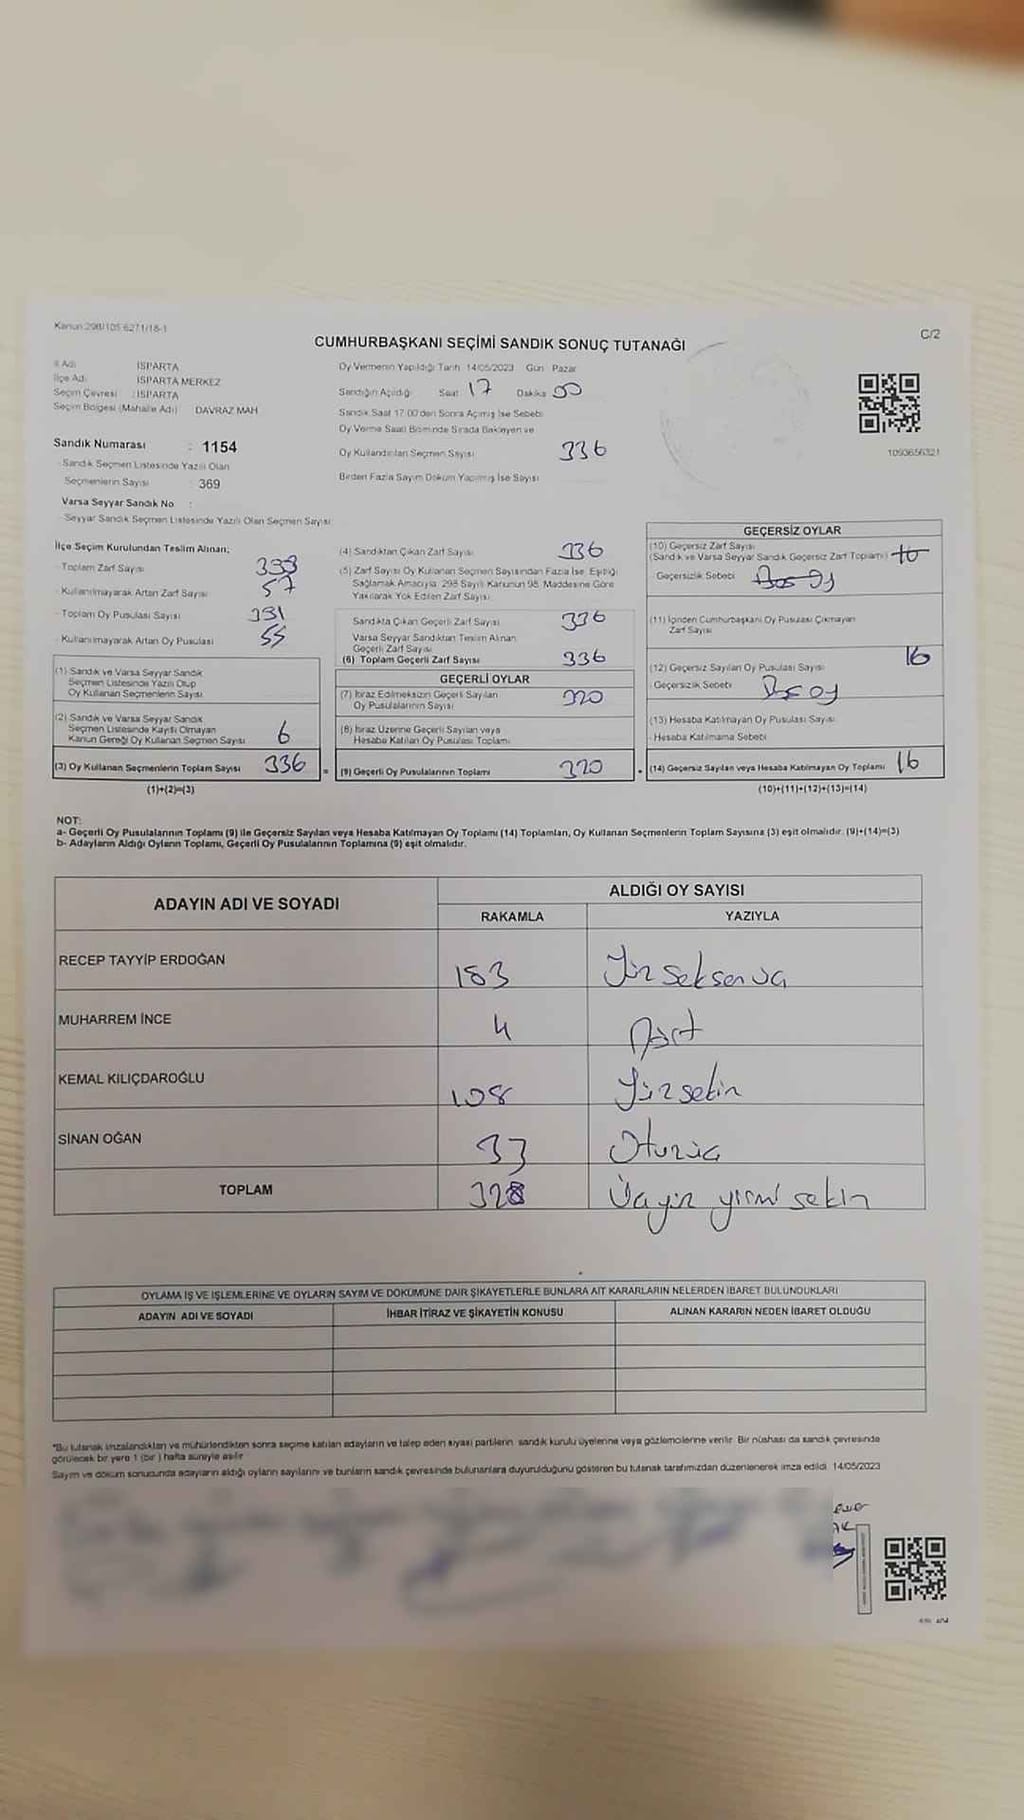 Kanun:298/105 6271/18-1
C/2
CUMHURBAŞKANI SEÇİMİ SANDIK SONUÇ TUTANAĞI
İl Adı : ISPARTA
İlçe Adı : ISPARTA MERKEZ
Seçim Çevresi : ISPARTA
Seçim Bölgesi (Mahalle Adı) DAVRAZ MAH
Sandık Numarası : 1154
Sandık Seçmen Listesinde Yazılı Olan
Seçmenlerin Sayısı : 369
Varsa Seyyar Sandık No :
Seyyar Sandık Seçmen Listesinde Yazılı Olan Seçmen Sayısı:
Oy Vermenin Yapıldığı Tarih 14/05/2023 Gün Pazar
Sandığın Açıldığı Saat 17 Dakika 00
Sandık Saat 17.00'den Sonra Açılmış İse Sebebi
Oy Verme Saati Bitiminde Sırada Bekleyen ve
Oy Kullandırılan Seçmen Sayısı 336
Birden Fazla Sayım Döküm Yapılmış İse Sayısı
1093656321
İlçe Seçim Kurulundan Teslim Alınan;
- Toplam Zarf Sayısı
- Kullanılmayarak Artan Zarf Sayısı 57
- Toplam Oy Pusulası Sayısı
- Kullanılmayarak Artan Oy Pusulası 55
(1) Sandık ve Varsa Seyyar Sandık
Seçmen Listesinde Yazılı Olup
Oy Kullanan Seçmenlerin Sayısı
(2) Sandık ve Varsa Seyyar Sandık
Seçmen Listesinde Kayıtlı Olmayan
Kanun Gereği Oy Kullanan Seçmen Sayısı 6
(3) Oy Kullanan Seçmenlerin Toplam Sayısı 336
(1)+(2)=(3)
(4) Sandıktan Çıkan Zarf Sayısı 336
(5) Zarf Sayısı Oy Kullanan Seçmen Sayısından Fazla İse, Eşitliği
Sağlamak Amacıyla, 298 Sayılı Kanunun 98. Maddesine Göre
Yakılarak Yok Edilen Zarf Sayısı
Sandıkta Çıkan Geçerli Zarf Sayısı 336
Varsa Seyyar Sandıktan Teslim Alınan
Geçerli Zarf Sayısı
(6) Toplam Geçerli Zarf Sayısı 336
GEÇERLİ OYLAR
(7) İtiraz Edilmeksizin Geçerli Sayılan
Oy Pusulalarının Sayısı 320
(8) İtiraz Üzerine Geçerli Sayılan veya
Hesaba Katılan Oy Pusulası Toplamı
= (9) Geçerli Oy Pusulalarının Toplamı 320
GEÇERSİZ OYLAR
(10) Geçersiz Zarf Sayısı
(Sandık ve Varsa Seyyar Sandık Geçersiz Zarf Toplamı)
- Geçersizlik Sebebi
(11) İçinden Cumhurbaşkanı Oy Pusulası Çıkmayan
Zarf Sayısı
(12) Geçersiz Sayılan Oy Pusulası Sayısı 16
- Geçersizlik Sebebi
(13) Hesaba Katılmayan Oy Pusulası Sayısı
- Hesaba Katılmama Sebebi
+ (14) Geçersiz Sayılan veya Hesaba Katılmayan Oy Toplamı 16
(10)+(11)+(12)+(13)=(14)
NOT:
a- Geçerli Oy Pusulalarının Toplamı (9) ile Geçersiz Sayılan veya Hesaba Katılmayan Oy Toplamı (14) Toplamları, Oy Kullanan Seçmenlerin Toplam Sayısına (3) eşit olmalıdır. (9)+(14)=(3)
b- Adayların Aldığı Oyların Toplamı, Geçerli Oy Pusulalarının Toplamına (9) eşit olmalıdır.
ADAYIN ADI VE SOYADI ALDIĞI OY SAYISI
RAKAMLA YAZIYLA
RECEP TAYYİP ERDOĞAN 183 Yüz seksen üç
MUHARREM İNCE 4 Dört
KEMAL KILIÇDAROĞLU 108 Yüzsekiz
SİNAN OĞAN 33 Otuzüç
TOPLAM 328 Üçyüz yirmi sekiz
OYLAMA İŞ VE İŞLEMLERİNE VE OYLARIN SAYIM VE DÖKÜMÜNE DAİR ŞİKAYETLERLE BUNLARA AİT KARARLARIN NELERDEN İBARET BULUNDUKLARI
ADAYIN ADI VE SOYADI İHBAR İTİRAZ VE ŞİKAYETİN KONUSU ALINAN KARARIN NEDEN İBARET OLDUĞU
*Bu tutanak imzalandıktan ve mühürlendikten sonra seçime katılan adayların ve talep eden siyasi partilerin sandık kurulu üyelerine veya gözlemcilerine verilir. Bir nüshası da sandık çevresinde
görülecek bir yere 1 (bir) hafta süreyle asılır
Sayım ve döküm sonucunda adayların aldığı oyların sayılarını ve bunların sandık çevresinde bulunanlara duyurulduğunu gösteren bu tutanak tarafımızdan düzenlenerek imza edildi. 14/05/2023